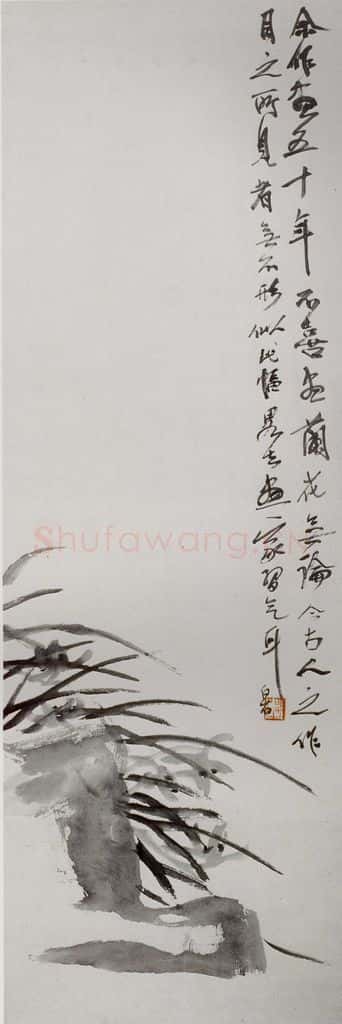 余作畫五十年不喜畫蘭花無論今古人之作
目之所見者無不形似此幅畧去畫家習氣耳
Shufawang.cn